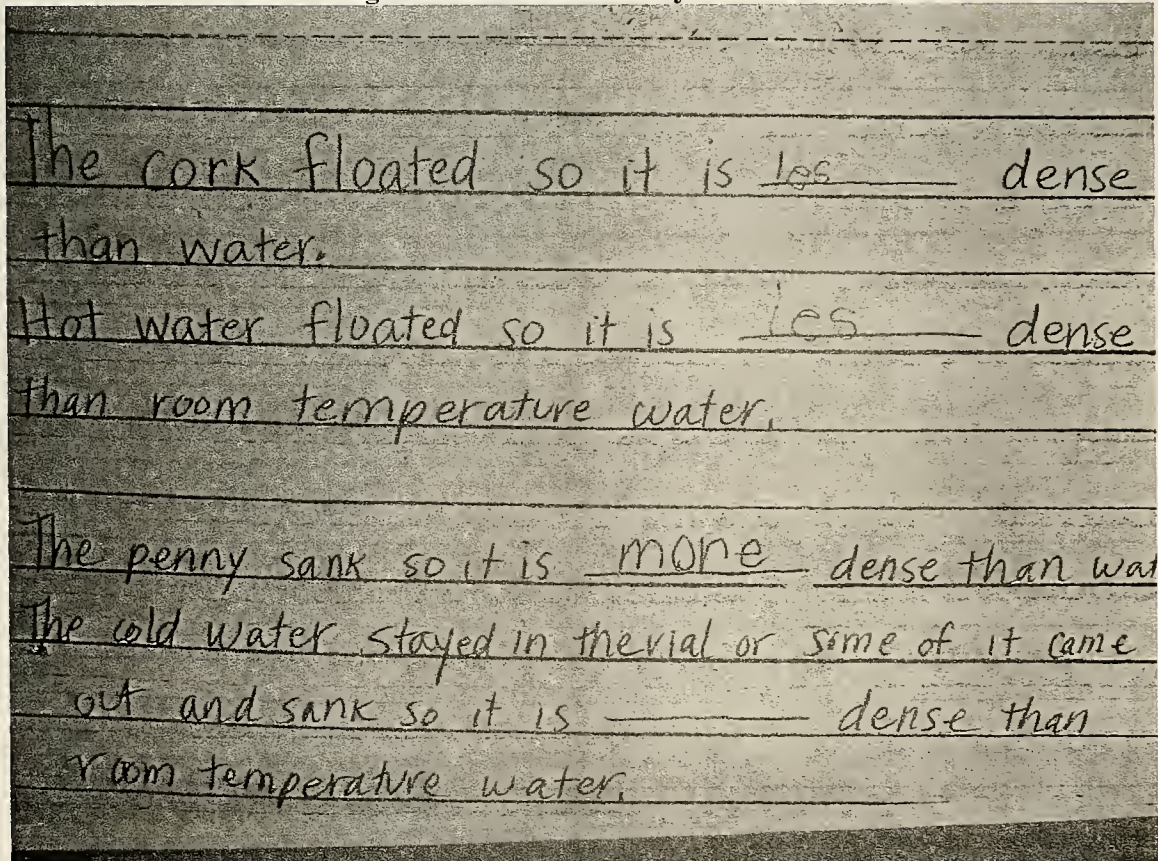 The cork floated so it is les dense
than water.
Hot water floated so it is les dense
than room temperature water.
The penny sank so it is more dense than wat
The cold water stayed in the vial or some of it came
out and sank so it is ______ dense than
room temperature water.